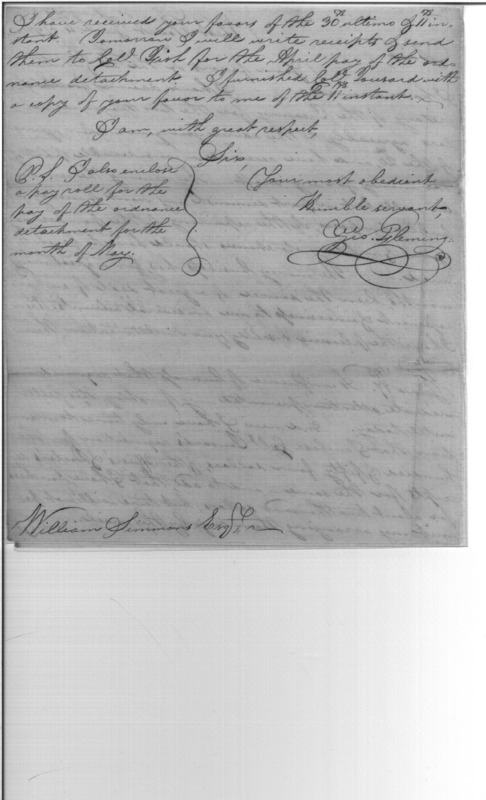 I have received your favors of the 30th ultimo & 11th in-
stant. Tomorrow I will write receipts & send
them to Col. Fish for the April pay of the ord-
nance detachment. I furnished Col. Tousard with
a copy of your favor to me of the 11th instant.
I am, with great respect,
Sir,
Your most obedient
Humble servant,
Geo. Fleming
P.S. I also enclose
a pay roll for the
pay of the ordnance
detachment for the
month of May.
William Simmons Esqr.